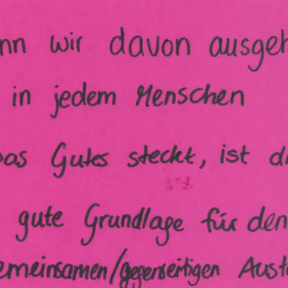 nn wir davon ausgeh
in jedem Menschen
as Gutes steckt, ist d
gute Grundlage für den
emeinsamen/gegenseitigen Aust